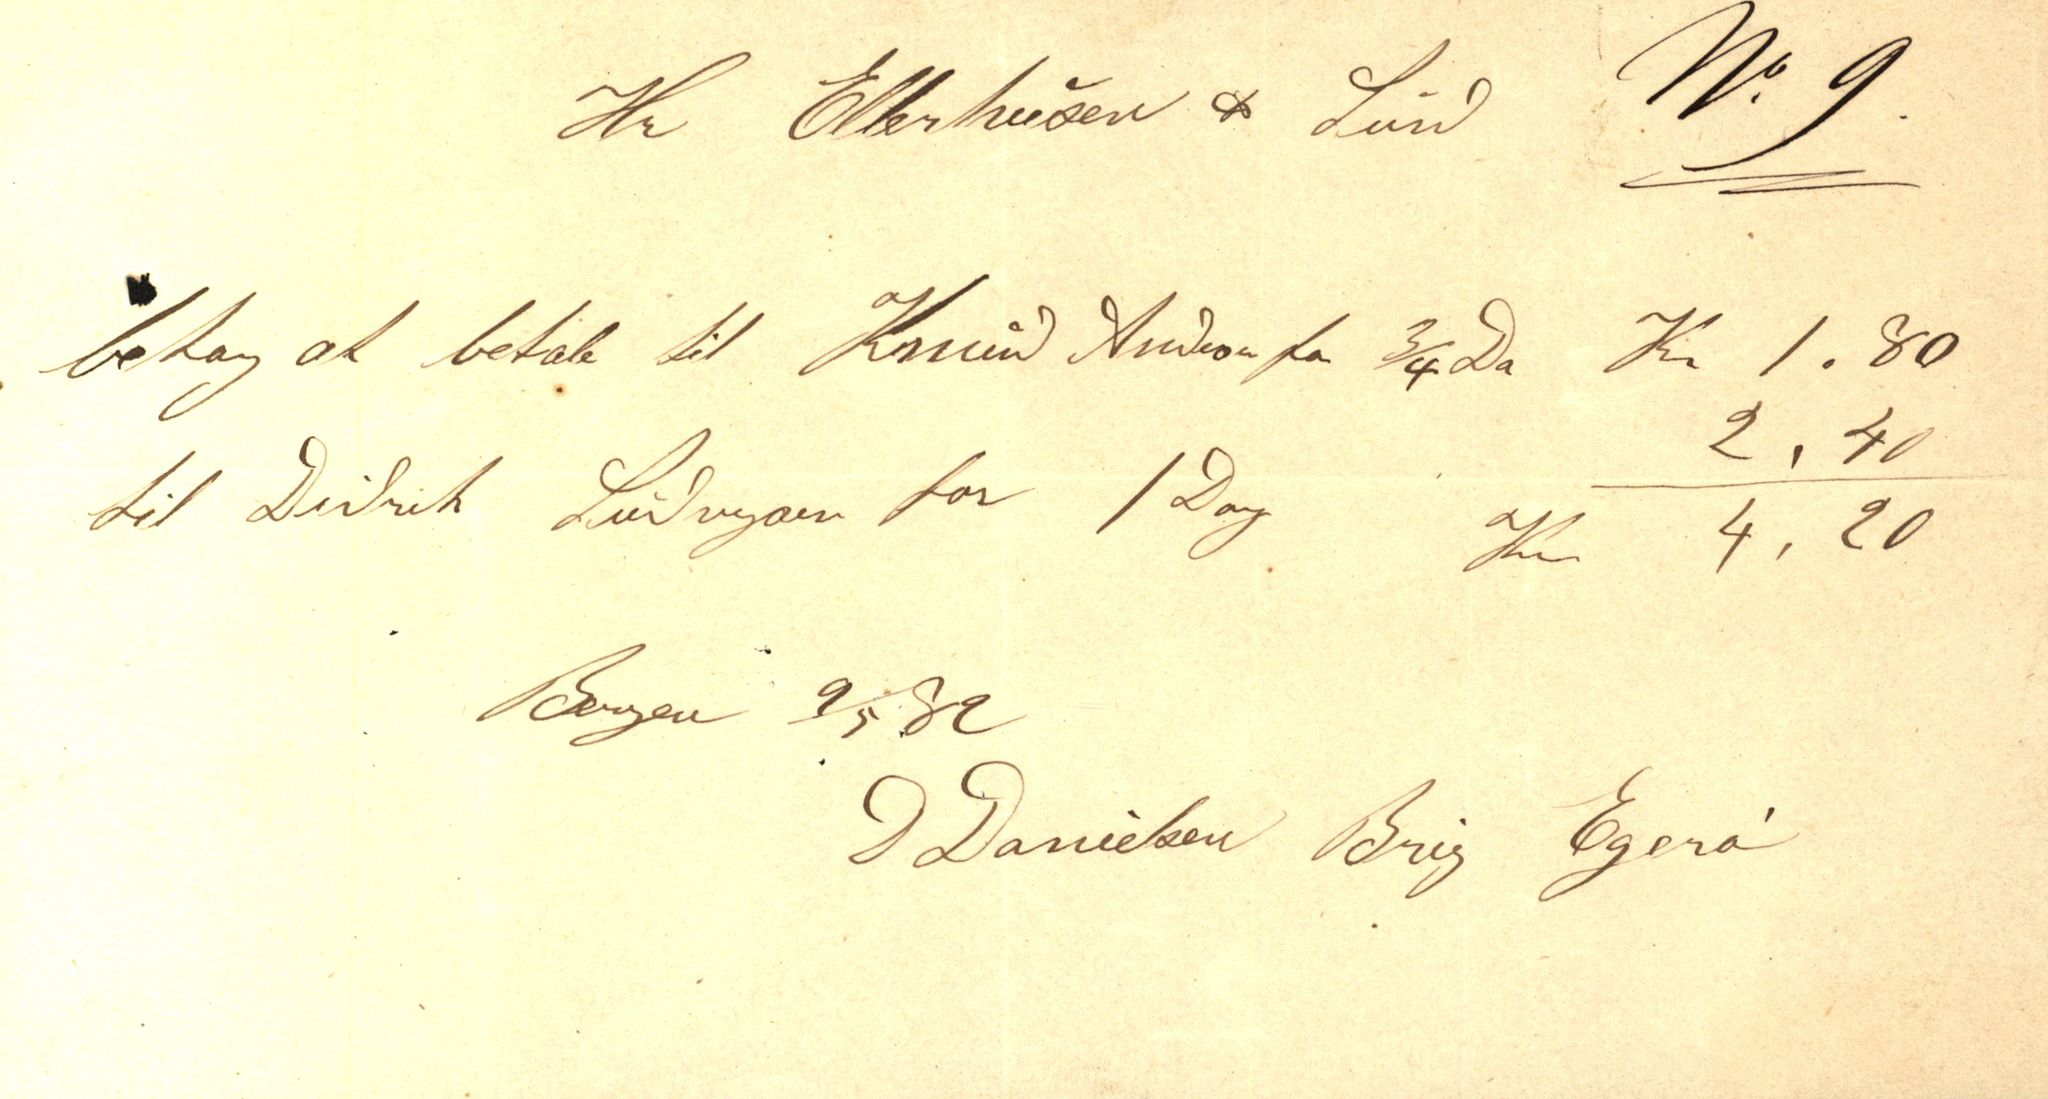 Hr Ellerhusen & Lund No. 9.
behag at betale til Knud Anderson for 3/4 Da Kr 1.80
2,40
til Didrik Ludvigsen for 1 Dag Kr 4,20
Bergen 9/5 82
D Danielsen Brig Egerö